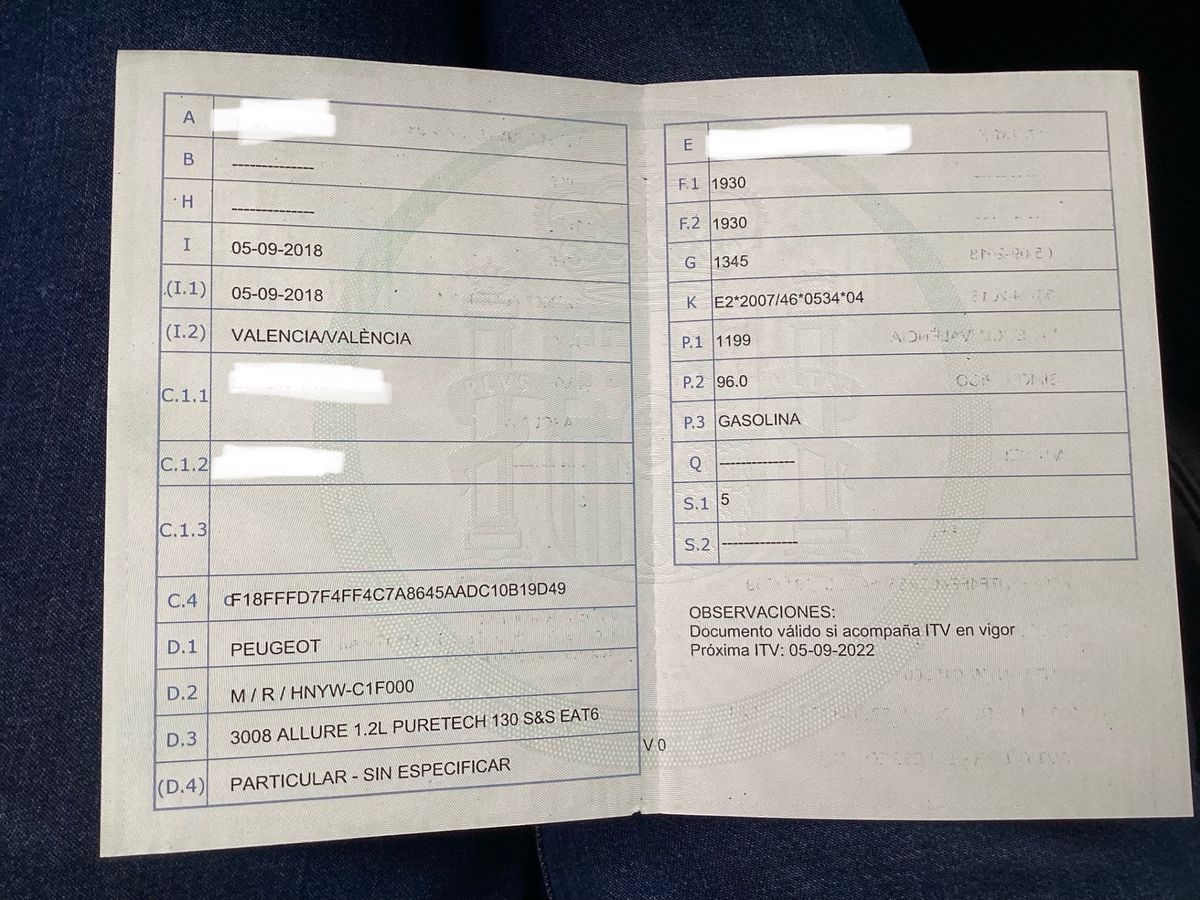 A
B --------------
H --------------
I 05-09-2018
(I.1) 05-09-2018
(I.2) VALENCIA/VALÈNCIA
C.1.1
C.1.2
C.1.3
C.4 F18FFFD7F4FF4C7A8645AADC10B19D49
D.1 PEUGEOT
D.2 M / R / HNYW-C1F000
D.3 3008 ALLURE 1.2L PURETECH 130 S&S EAT6
(D.4) PARTICULAR - SIN ESPECIFICAR
V 0
E
F.1 1930
F.2 1930
G 1345
K E2*2007/46*0534*04
P.1 1199
P.2 96.0
P.3 GASOLINA
Q -------------
S.1 5
S.2 -------------
OBSERVACIONES:
Documento válido si acompaña ITV en vigor
Próxima ITV: 05-09-2022